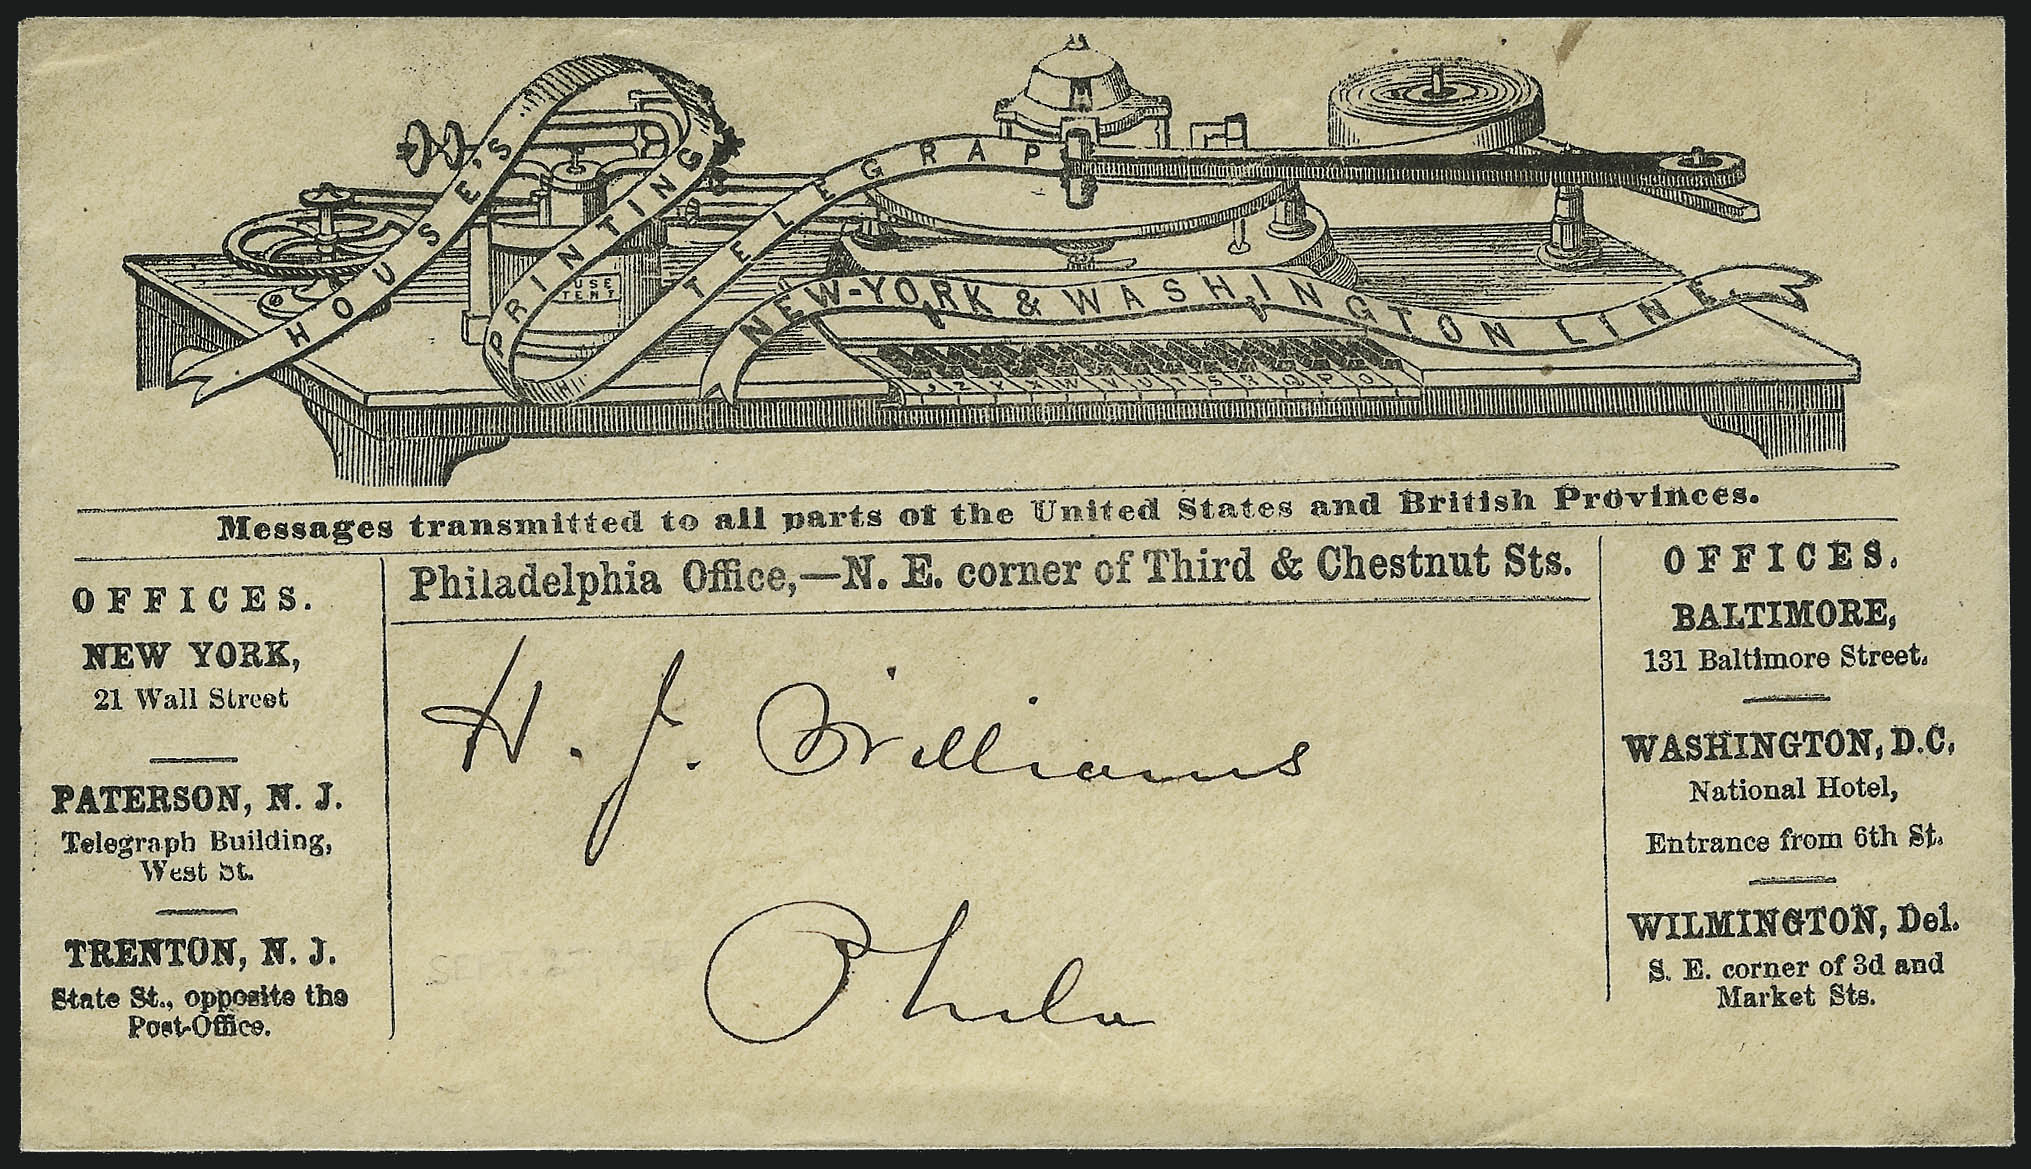 HOUSE'S PRINTING TELEGRAP
NEW-YORK & WASHINGTON LINE.
USE
TENT
, Z Y X W V U T S R Q P O
Messages transmitted to all parts of the United States and British Provinces.
Philadelphia Office,—N. E. corner of Third & Chestnut Sts.
OFFICES.
NEW YORK,
21 Wall Street
PATERSON, N. J.
Telegraph Building,
West St.
TRENTON, N. J.
State St., opposite the
Post-Office.
H. J. Williams
Phila
OFFICES.
BALTIMORE,
131 Baltimore Street.
WASHINGTON, D.C.
National Hotel,
Entrance from 6th St.
WILMINGTON, Del.
S. E. corner of 3d and
Market Sts.